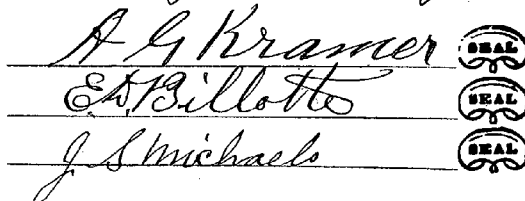 A G Kramer SEAL
E.D. Billotte SEAL
J. S Michaels SEAL